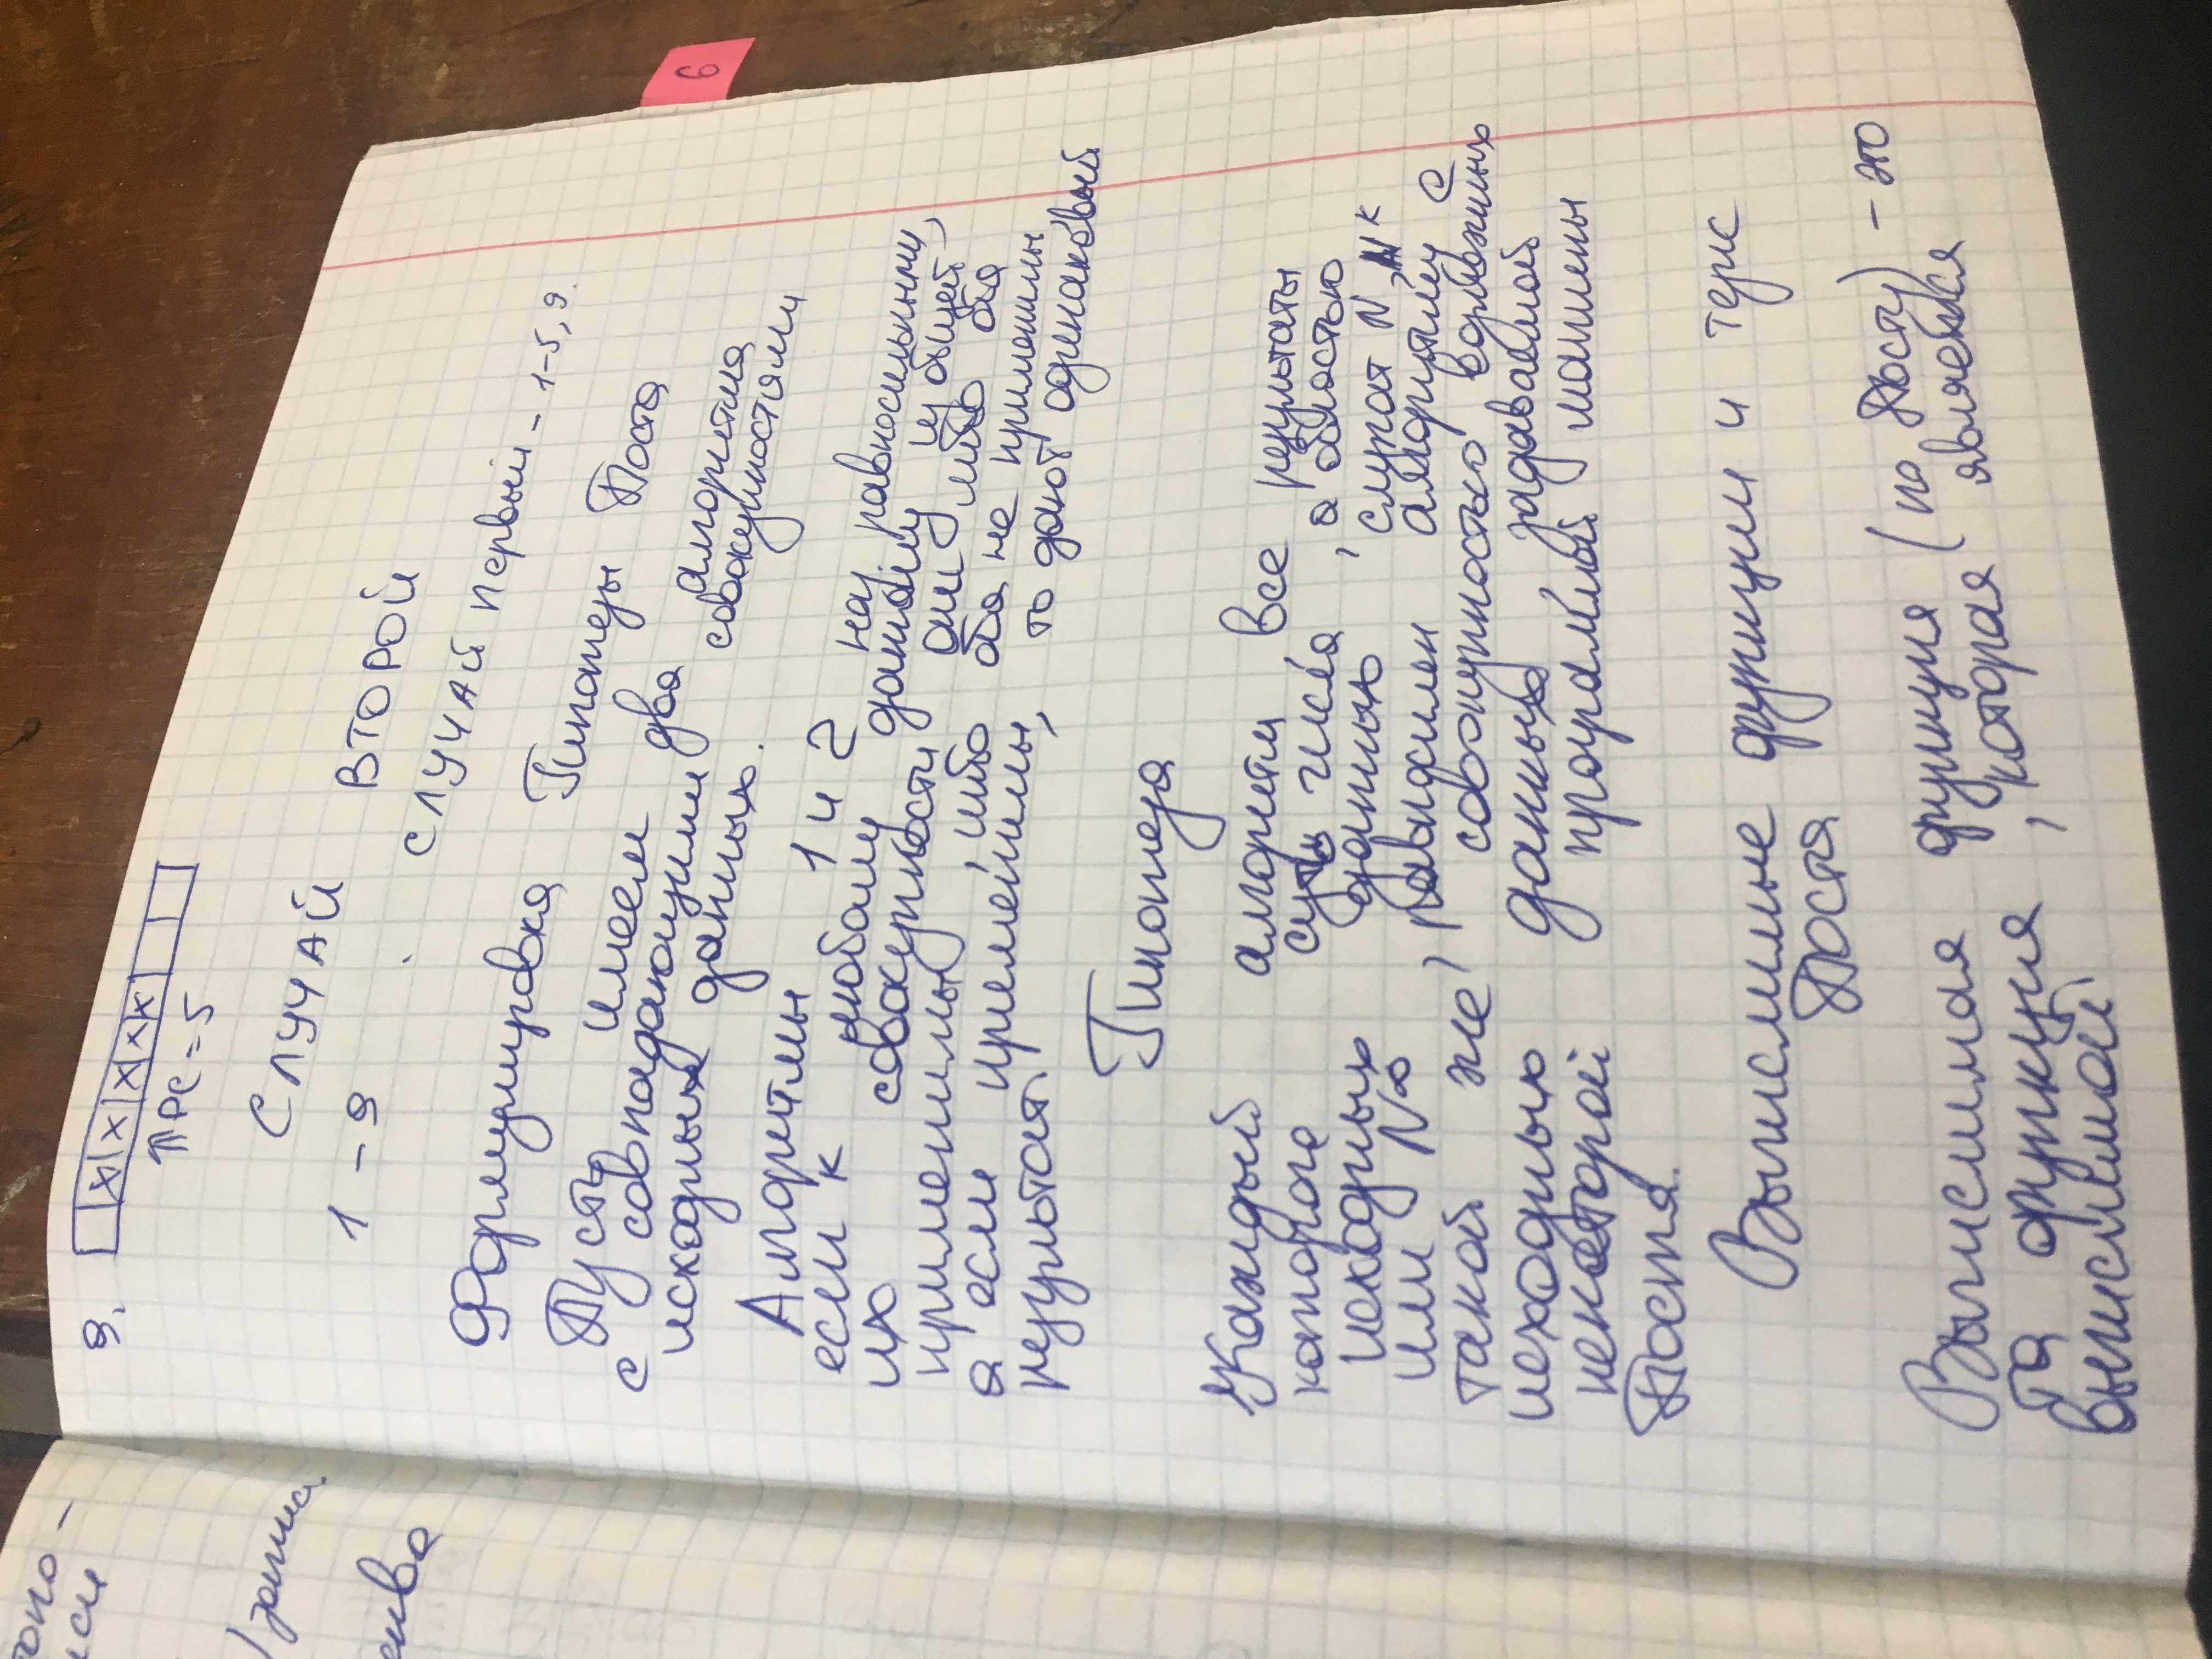 топо-
иси
) запис.
ства
9.
x x x x x
↑ PC = 5
СЛУЧАЙ ВТОРОЙ
1 – 9
СЛУЧАЙ первый – 1–5, 9.
Формулировка Гипотезы Поста
Пусть имеем два алгоритма
с совпадающими совокупностями
исходных данных.
Алгоритмы 1 и 2 наз. равносильными,
если к любому данному из общей
их совокупности они либо оба
применимы, либо оба не применимы,
а если применимы, то дают одинаковый
результат.
Гипотеза
Каждый алгоритм, все результаты
которого суть числа, а областью
исходных данных служат N, N^k
или N^∞, равносилен алгоритму с
такой же совокупностью возможных
исходных данных, задаваемой
некоторой программой машины
Поста.
Вычислимые функции и тезис
Поста
Вычислимая функция (по Посту) – это
та функция, которая является
вычислимой
6